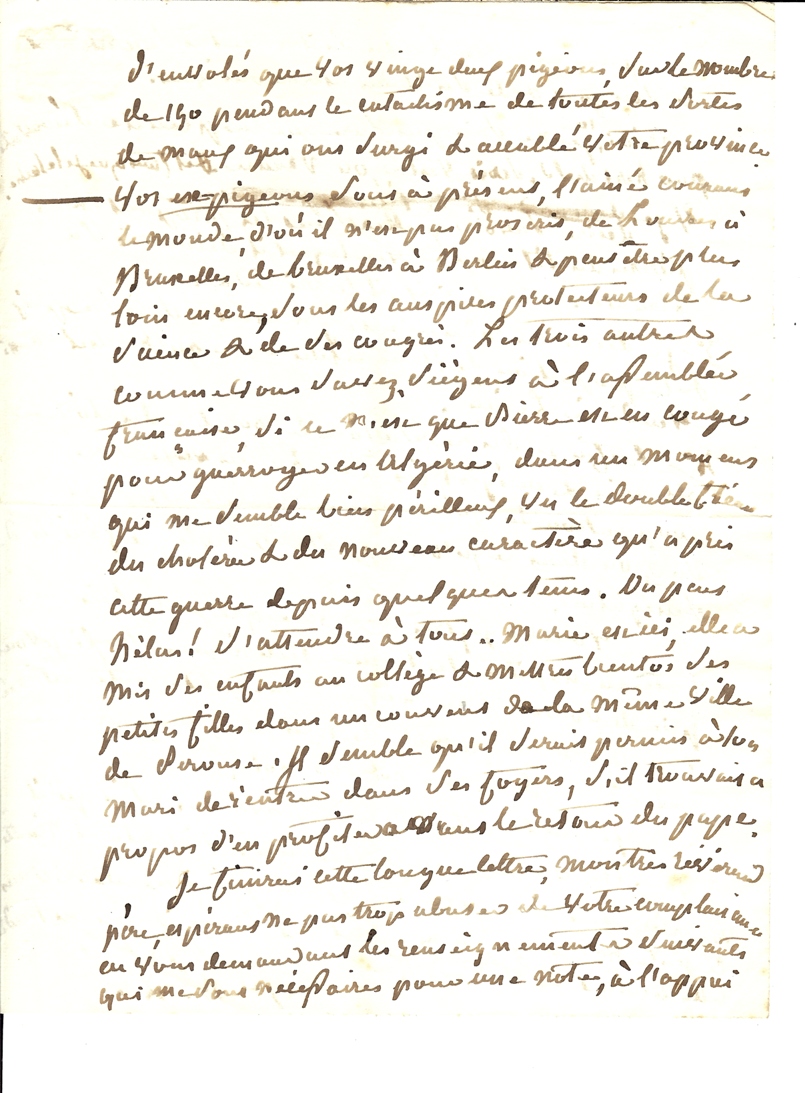 d'envolés que vos vingt deux pigeons, sur le nombre
de 190 pendant le cataclisme de toutes les sortes
de maux qui ont surgi & accablé votre province
vos ex-pigeons sont à présent, l'ainé courant
le monde d'où il n'est pas proscris, de Londres à
Bruxelles, de bruxelles à Berlin & peut être plus
loin encore, sous les auspices protecteurs de la
science & de ses congrès. Les trois autres
comme vous savez, siègent à l'assemblée
française, si ce n'est que Pierre est en congé
pour guerroyer en Algérie, dans un moment
qui me semble bien périlleux, vu le double fléau
du choléra & du nouveau caractère qu'a pris
cette guerre depuis quelques tems. On peut
hélas! s'attendre à tous.. Marie est ici, elle a
mis ses enfants au collège & mettra bientôt ses
petites filles dans un couvent de la même ville
de Perouse. Il semble qu'il serait permis à son
mari de rentrer dans ses foyers, s'il trouvait a
propos d'en profiter avant le retour du pape.
Je finirai cette longue lettre, mon très révérend
père, espérant ne pas trop abuser de votre complaisance
en vous demandant les renseignements suivants
qui me sont nécessaires pour une note, à l'appui